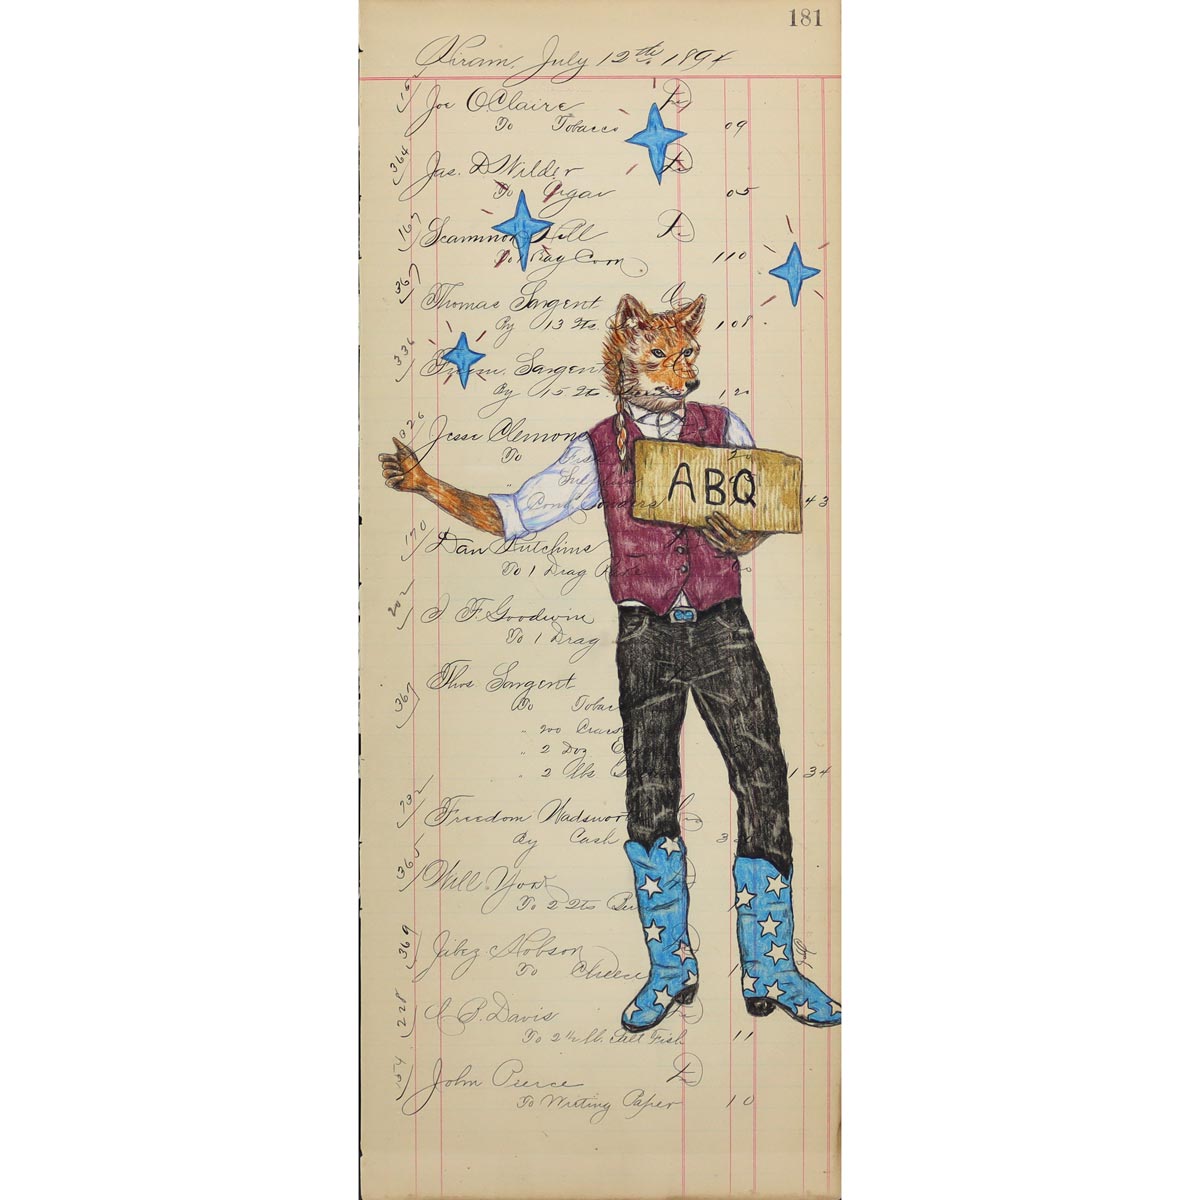 181
Hiram, July 12th 1894
15
Joe O.Claire Dr
To Tobacco 09
364
Jas. D Wilder Dr
To Cigar 05
167
Scammon Hill Dr
To 1 Bag Corn 110
367
Thomas Sargent
By 13 Qts. 108
336
Freem. Sargent
By 15 Qts. 120
Jesse Clemons
To Fish
ABQ
43
170
Dan Hutchins
To 1 Drag Rake
202
I F. Goodwin
To 1 Drag
367
Thos Sargent
To Tobac
" 200
" 2 Doz
" 2 lbs 134
232
Freedom Wadswort
By Cash
365
Will York
To 2 Qts
369
Jabez Hobson
To Cheese
228
C P. Davis
To 2 1/2 lb. Salt Fish 11
154
John Pierce Dr
To Writing Paper 10